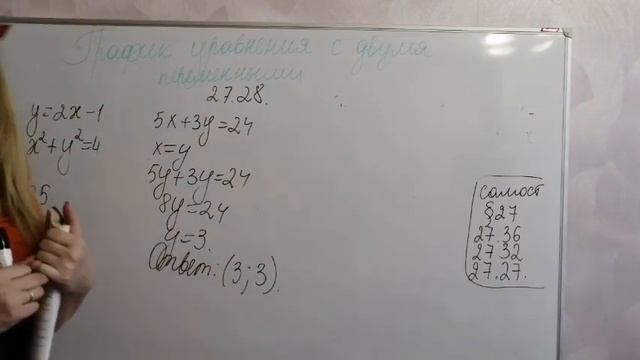 График уравнения с двумя
переменными
27.28.
y=2x-1
x²+y²=4
5x+3y=24
x=y
5y+3y=24
8y=24
y=3.
Ответ: (3;3).
самост
§27
27.36
27.32
27.27.